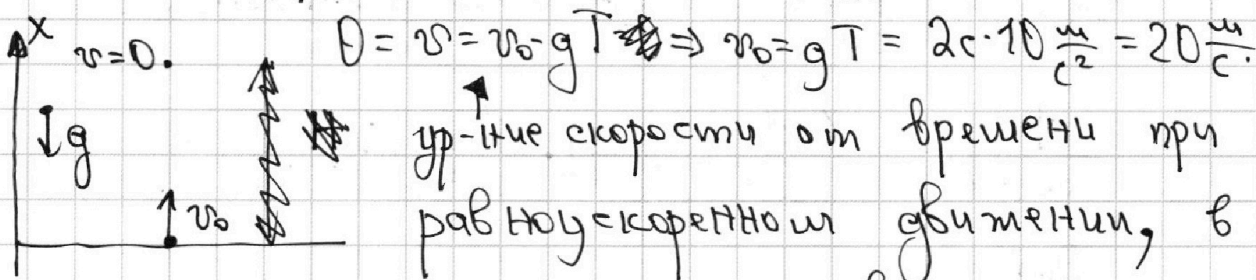 x v=0. 0 = v = v₀ - gT => v₀ = gT = 2с·10 м/с² = 20 м/с.
↓g ур-ние скорости от времени при
↑v₀ равноускоренном движении, в